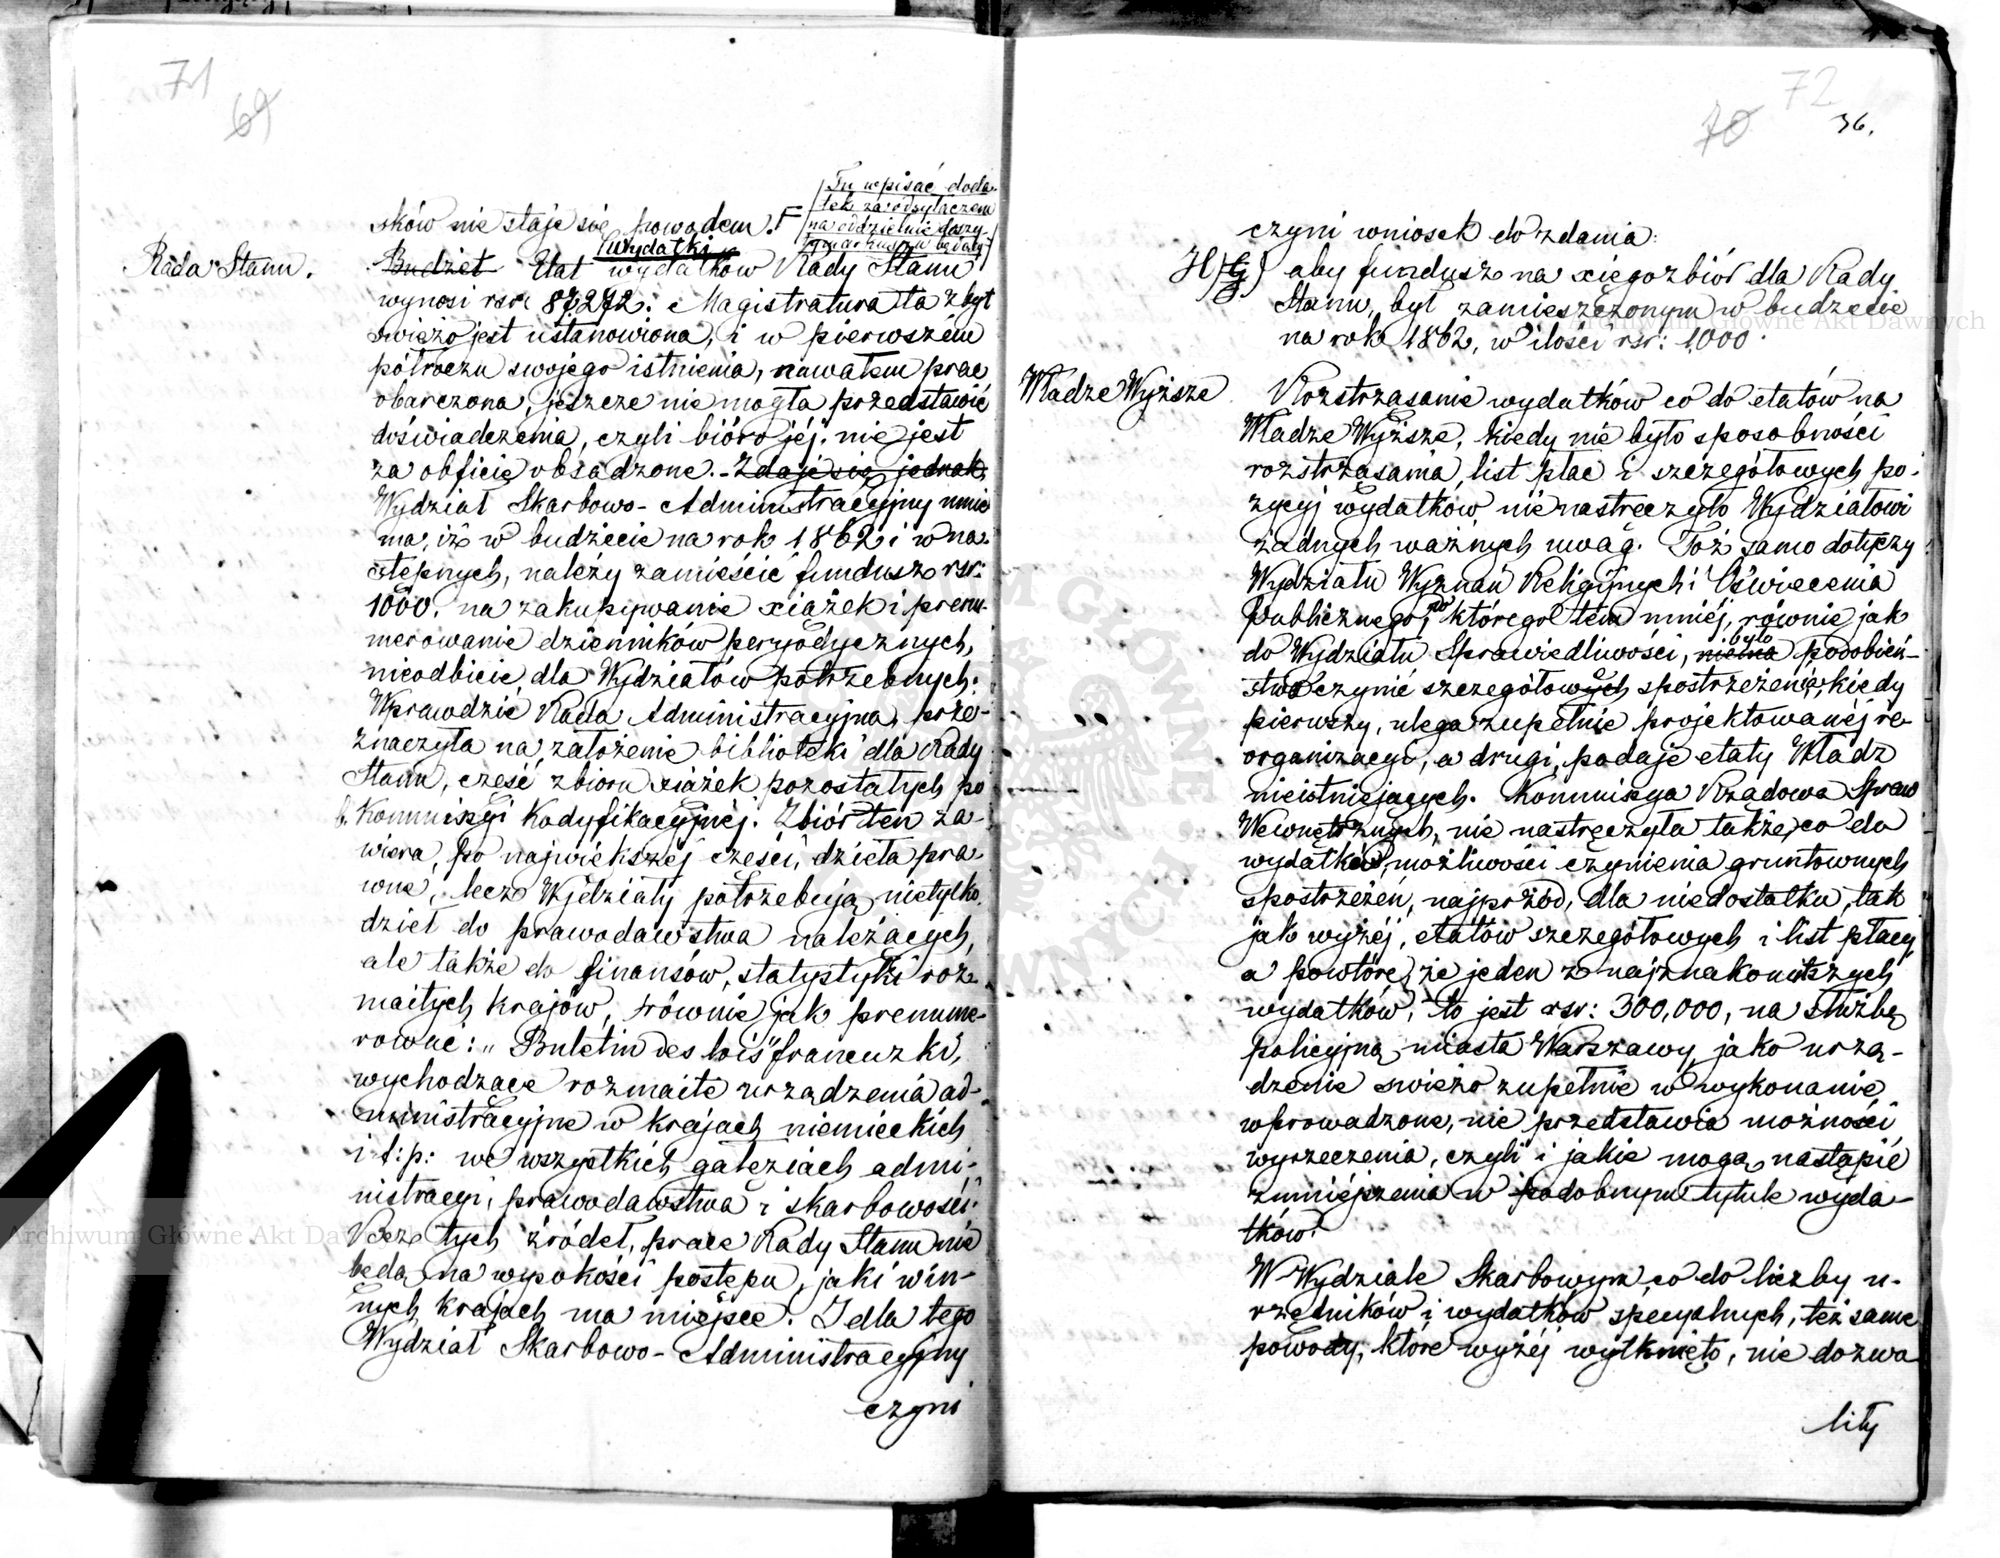 71
69
Tu wpisać doda-
tek za odsyłaczem
na oddzielnie doszy-
tym arkuszu będący
sków nie staje się powodem. F
Wydatki
Rada Stanu.
Budżet Etat wydatków Rady Stanu
wynosi rsr. 87272: Magistratura ta zbyt
świeżo jest ustanowiona, i w pierwszém
półroczu swojego istnienia, nawałem prac
obarczona, jeszcze nie mogła przedstawić
doświadczenia, czyli bióro jéj nie jest
za obficie obsadzone. - Zdaje się jednak
Wydział Skarbowo-Administracyjny mnie
ma, iż w budżecie na rok 1862 i w na-
stępnych, należy zamieścić fundusz rsr:
1000. na zakupywanie xiążek i prenu-
merowanie dzienników peryodycznych,
nieodbicie dla Wydziałów potrzebnych.
Wprawdzie Rada Administracyjna, prze-
znaczyła na założenie biblioteki dla Rady
Stanu, część zbioru xiążek pozostałych po
b. Kommissyi Kodyfikacyjnéj. Zbiór ten za-
wiera, po największéj części, dzieła pra-
wne, lecz Wydziały potrzebują nietylko
dzieł do prawodawstwa należących,
ale także do finansów, statystyki roz-
maitych krajów, równie jak prenume-
rować: „Buletin des lois" francuzki,
wychodzące rozmaite urządzenia ad-
ministracyjne w krajach niemieckich
i t: p: we wszystkich gałęziach admi-
nistracyi, prawodawstwa i skarbowości.
Bez tych źródeł, prace Rady Stanu nie
będą na wysokości postępu, jaki w in-
nych krajach ma miejsce. I dla tego
Wydział Skarbowo-Administracyjny
czyni
72
70
36.
czyni wniosek do zdania:
H) G) aby fundusz na xięgozbiór dla Rady
Stanu, był zamieszczonym w budżecie
na rok 1862, w ilości rsr: 1000.
Władze Wyższe
Rozstrząsanie wydatków co do etatów na
Władze Wyższe, kiedy nie było sposobności
rozstrząsania list płac i szczegółowych po-
zycyj wydatków, nie nastręczyło Wydziałowi
żadnych ważnych uwag. Toż samo dotyczy
Wydziału Wyznań Religijnych i Oświecenia
Publicznego, do którego tém mniéj, równie jak
było
do Wydziału Sprawiedliwości, niema podobień-
stwa czynić szczegółowych spostrzeżenia, kiedy
pierwszy, ulega zupełnie projektowanéj re-
organizacyi, a drugi, podaje etaty Władz
nieistniejących. Kommissya Rządowa Spraw
Wewnętrznych, nie nastręczyła także, co do
wydatków, możliwości czynienia gruntownych
spostrzeżeń, najprzód, dla niedostatku, tak
jak wyżéj, etatów szczegółowych i list płacy,
a powtóre, że jeden z najznakomitszych
wydatków, to jest rsr: 300,000, na służbę
policyjną miasta Warszawy, jako urzą-
dzenie świeżo zupełnie w wykonanie
wprowadzone, nie przedstawia możności
wyrzeczenia, czyli i jakie mogą nastąpić
zmniéjszenia w podobnym tytule wyda-
tków.
W Wydziale Skarbowym, co do liczby u-
rzędników i wydatków specyalnych, też same
powody, które wyżéj wytknięto, nie dozwo
liły
Archiwum Główne Akt Dawnych
Archiwum Główne Akt Dawnych